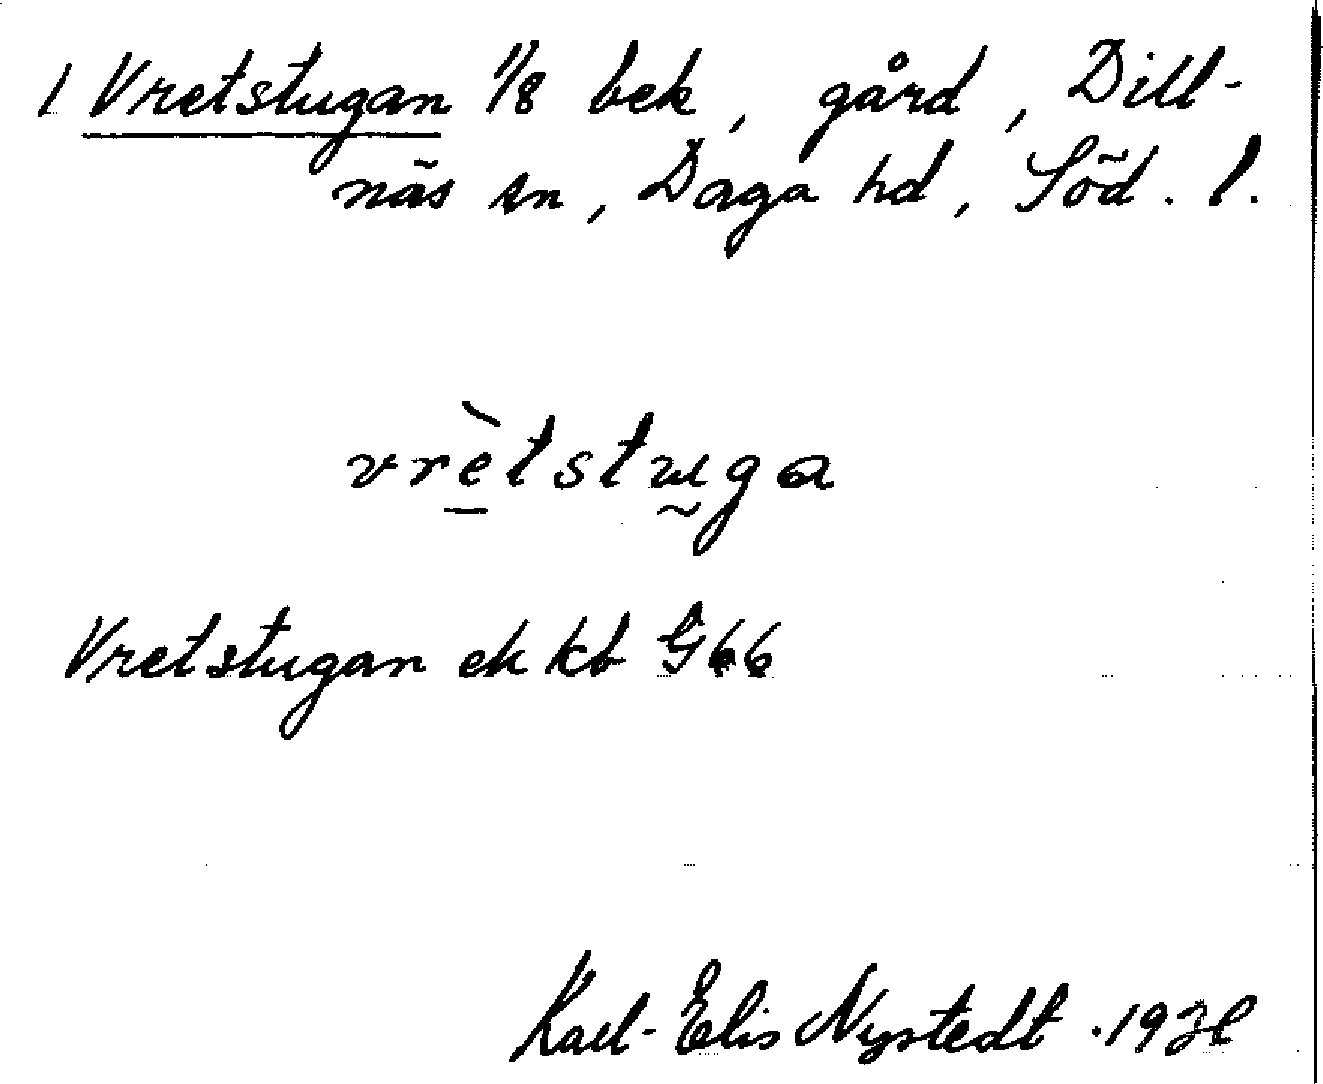 1 Vretstugan 1/8 bek, gård, Dill-
näs sn, Daga hd, Söd. l.
vrètstuga
Vretstugan ek kb G 66
Karl-Elis Nystedt.